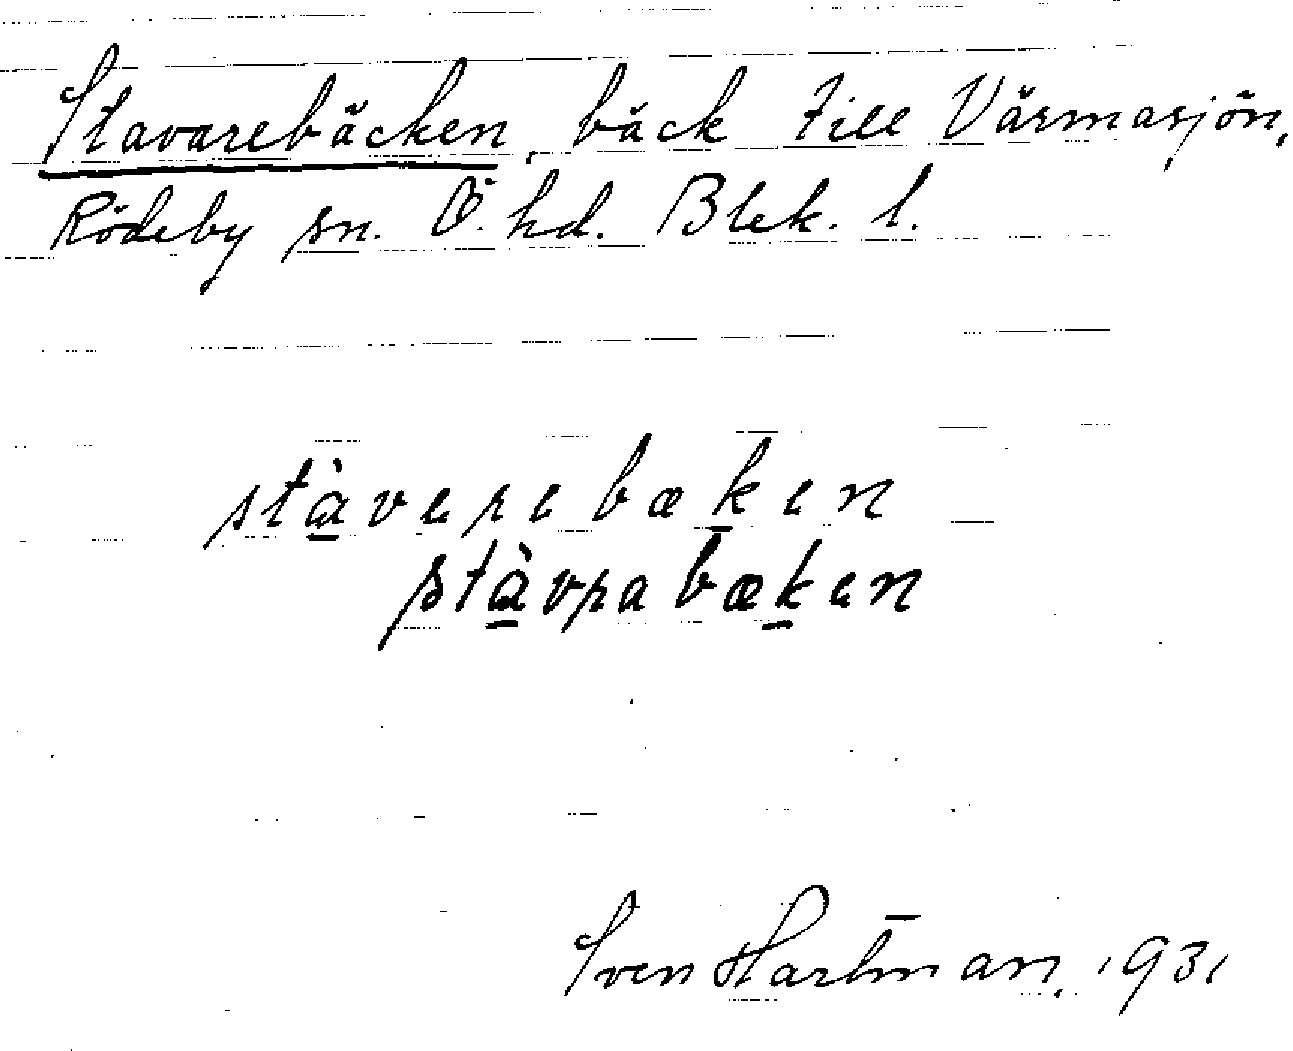 Stavarebäcken, bäck till Värmasjön,
Rödeby sn. Ö. hd. Blek. l.
stàverebæken
stàvrabæken
Sven Hartman, 1931